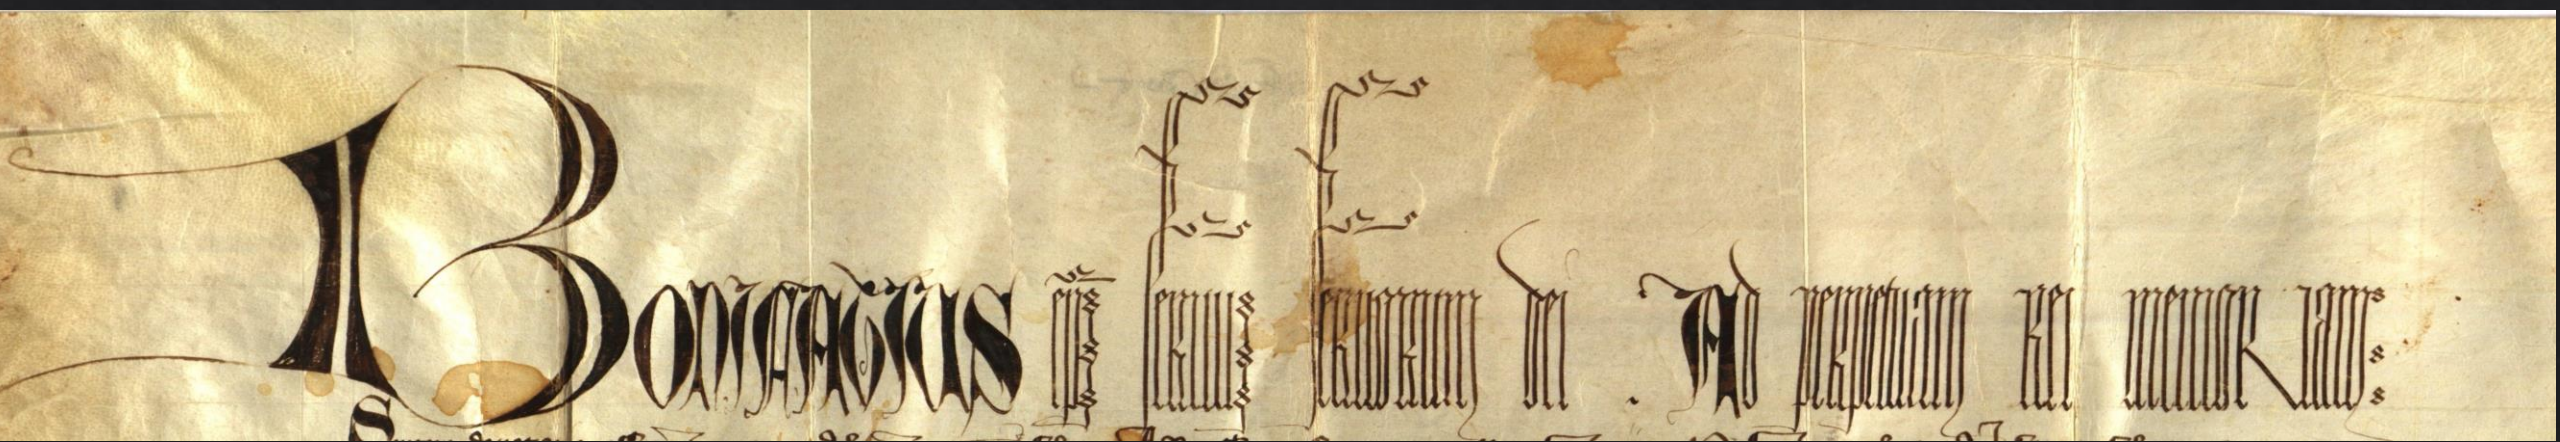 Bonifatius ep̄s seruus seruorum dei . Ad perpetuam rei memoriam